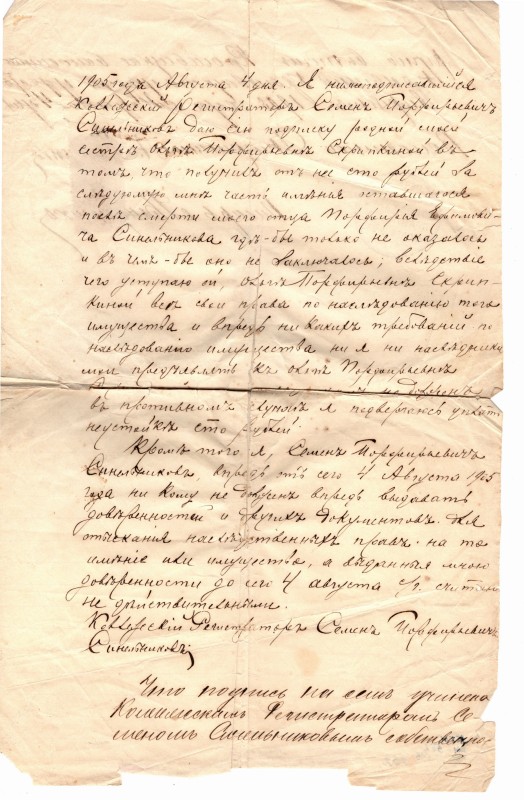 1905 года Августа 4 дня. Я нижеподписавшийся
Коллежскій Регистраторъ Семенъ Порфирьевичъ
Синельниковъ даю сію подписку родной моей
сестрѣ Ольгѣ Порфирьевнѣ Скрипкиной въ
томъ, что получивъ отъ нее сто рублей за
слѣдуюмую мнѣ часть имѣнія оставшагося
послѣ смерти моего отца Порфирья Ефимови-
ча Синельникова гдѣ-бы только не оказалось
и въ чемъ-бы оно не заключалось; вслѣдствіе
чего уступаю ей, Ольгѣ Порфирьевнѣ Скрип-
киной всѣ свои права по наслѣдованію того
имущества и впредь никакихъ требованій по
наслѣдованію имущества ни я ни наслѣдники
мои предъявлять къ Ольгѣ Порфирьевнѣ
не должен
въ противномъ случаѣ я подвергаюсь уплатѣ
неустойкѣ сто рублей
Кромѣ того я, Семенъ Порфирьевичъ
Синельниковъ, впредь отъ сего 4 Августа 1905
года ни кому не долженъ впредь выдавать
довѣренностей и другихъ документовъ для
отысканія наслѣдственныхъ правъ на то
имѣніе или имущество, а выданныя мною
довѣренности до сего 4 августа с/г. считаю
не дѣйствительными.
Коллежскій Регистраторъ Семенъ Порфирьевичъ
Синельниковъ
Что подпись на семъ учинена
Коллежскимъ Регистраторомъ Се-
меномъ Синельниковымъ собственно-